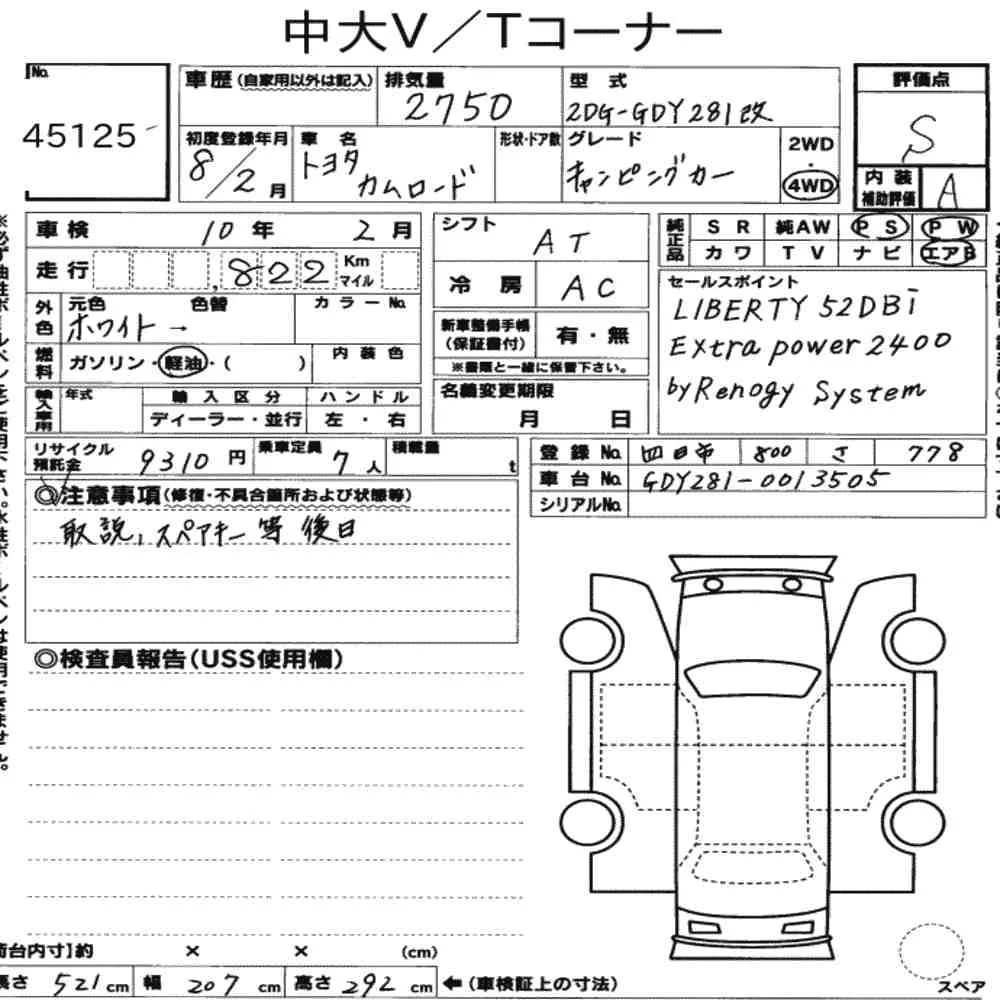 中大V／Tコーナー
No.
45125
車歴（自家用以外は記入）
排気量
2750
型式
2DG-GDY281改
評価点
S
初度登録年月
8/2月
車名
トヨタ
カムロード
形状・ドア数
グレード
キャンピングカー
2WD
・
4WD
内装
補助評価
A
車検 10年 2月
走行 ,822 Km マイル
外色
元色 色替
ホワイト→
カラーNo.
燃料
ガソリン・軽油・（ ）
内装色
輸入車用
年式
輸入区分
ディーラー・並行
ハンドル
左・右
シフト
AT
冷房
AC
新車整備手帳
（保証書付）
有・無
※書類と一緒に保管下さい。
名義変更期限
月 日
純正品
SR 純AW PS PW
カワ TV ナビ エアB
セールスポイント
LIBERTY 52DBi
Extra power 2400
by Renogy System
リサイクル
預託金
9310円
乗車定員
7人
積載量
t
登録No. 四日市 800 さ 778
車台No. GDY281-0013505
シリアルNo.
◎注意事項（修復・不具合箇所および状態等）
取説、スペアキー等 後日
◎検査員報告（USS使用欄）
荷台内寸】約 × × （cm）
長さ 521cm 幅 207cm 高さ 292cm ←（車検証上の寸法）
スペア